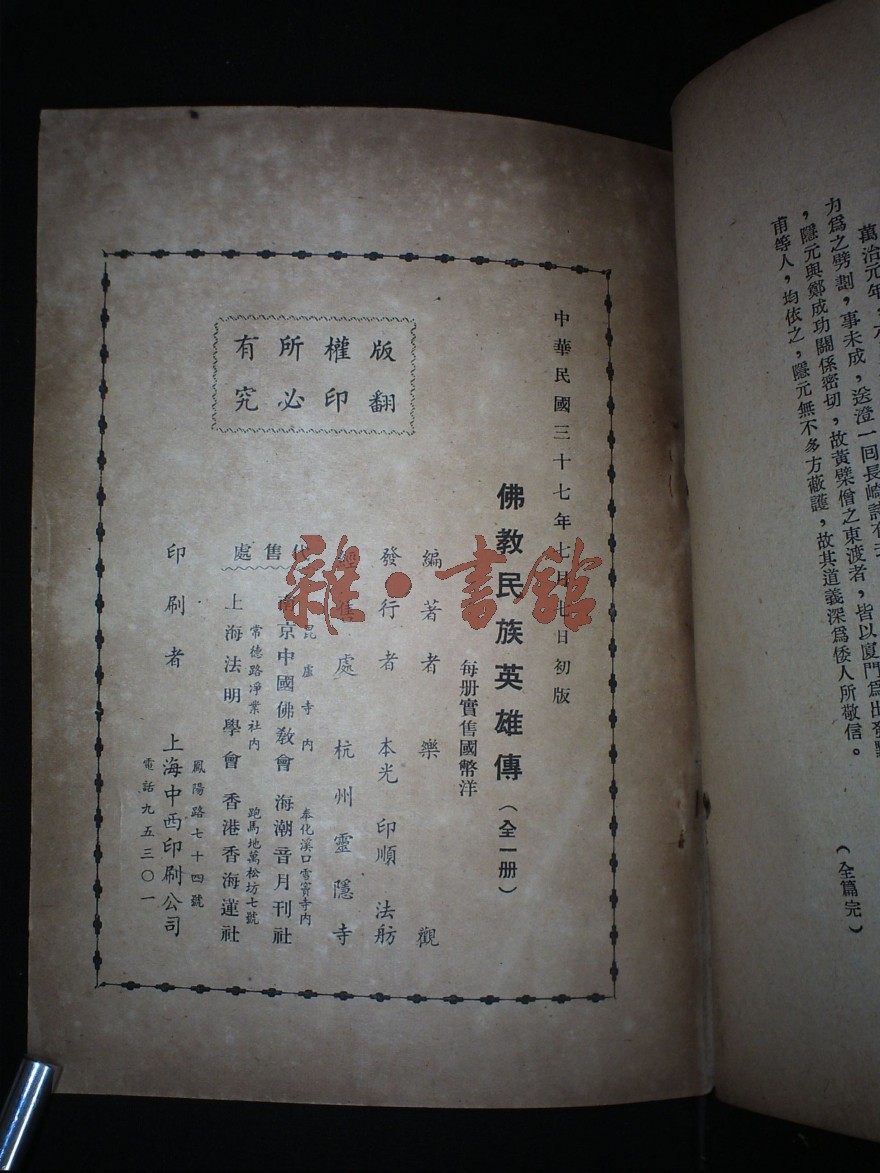 萬治元年，
力爲之劈劃，事未成，送澄一回長崎
，隱元與鄭成功關係密切，故黃檗僧之東渡者，皆以廈門爲出發點
甫等人，均依之，隱元無不多方蔽護，故其道義深爲倭人所敬信。
（全篇完）
中華民國三十七年七月七日初版
佛教民族英雄傳（全一册）
每册實售國幣洋
編著者 樂觀
發行者 本光 印順 法舫
經售處 杭州靈隱寺
代售處
毘盧寺內 奉化溪口雪竇寺內
南京中國佛敎會 海潮音月刊社
常德路淨業社內 跑馬地萬松坊七號
上海法明學會 香港香海蓮社
印刷者 上海中西印刷公司
鳳陽路七十四號
電話九五三〇一
版權所有
翻印必究
雜·書館